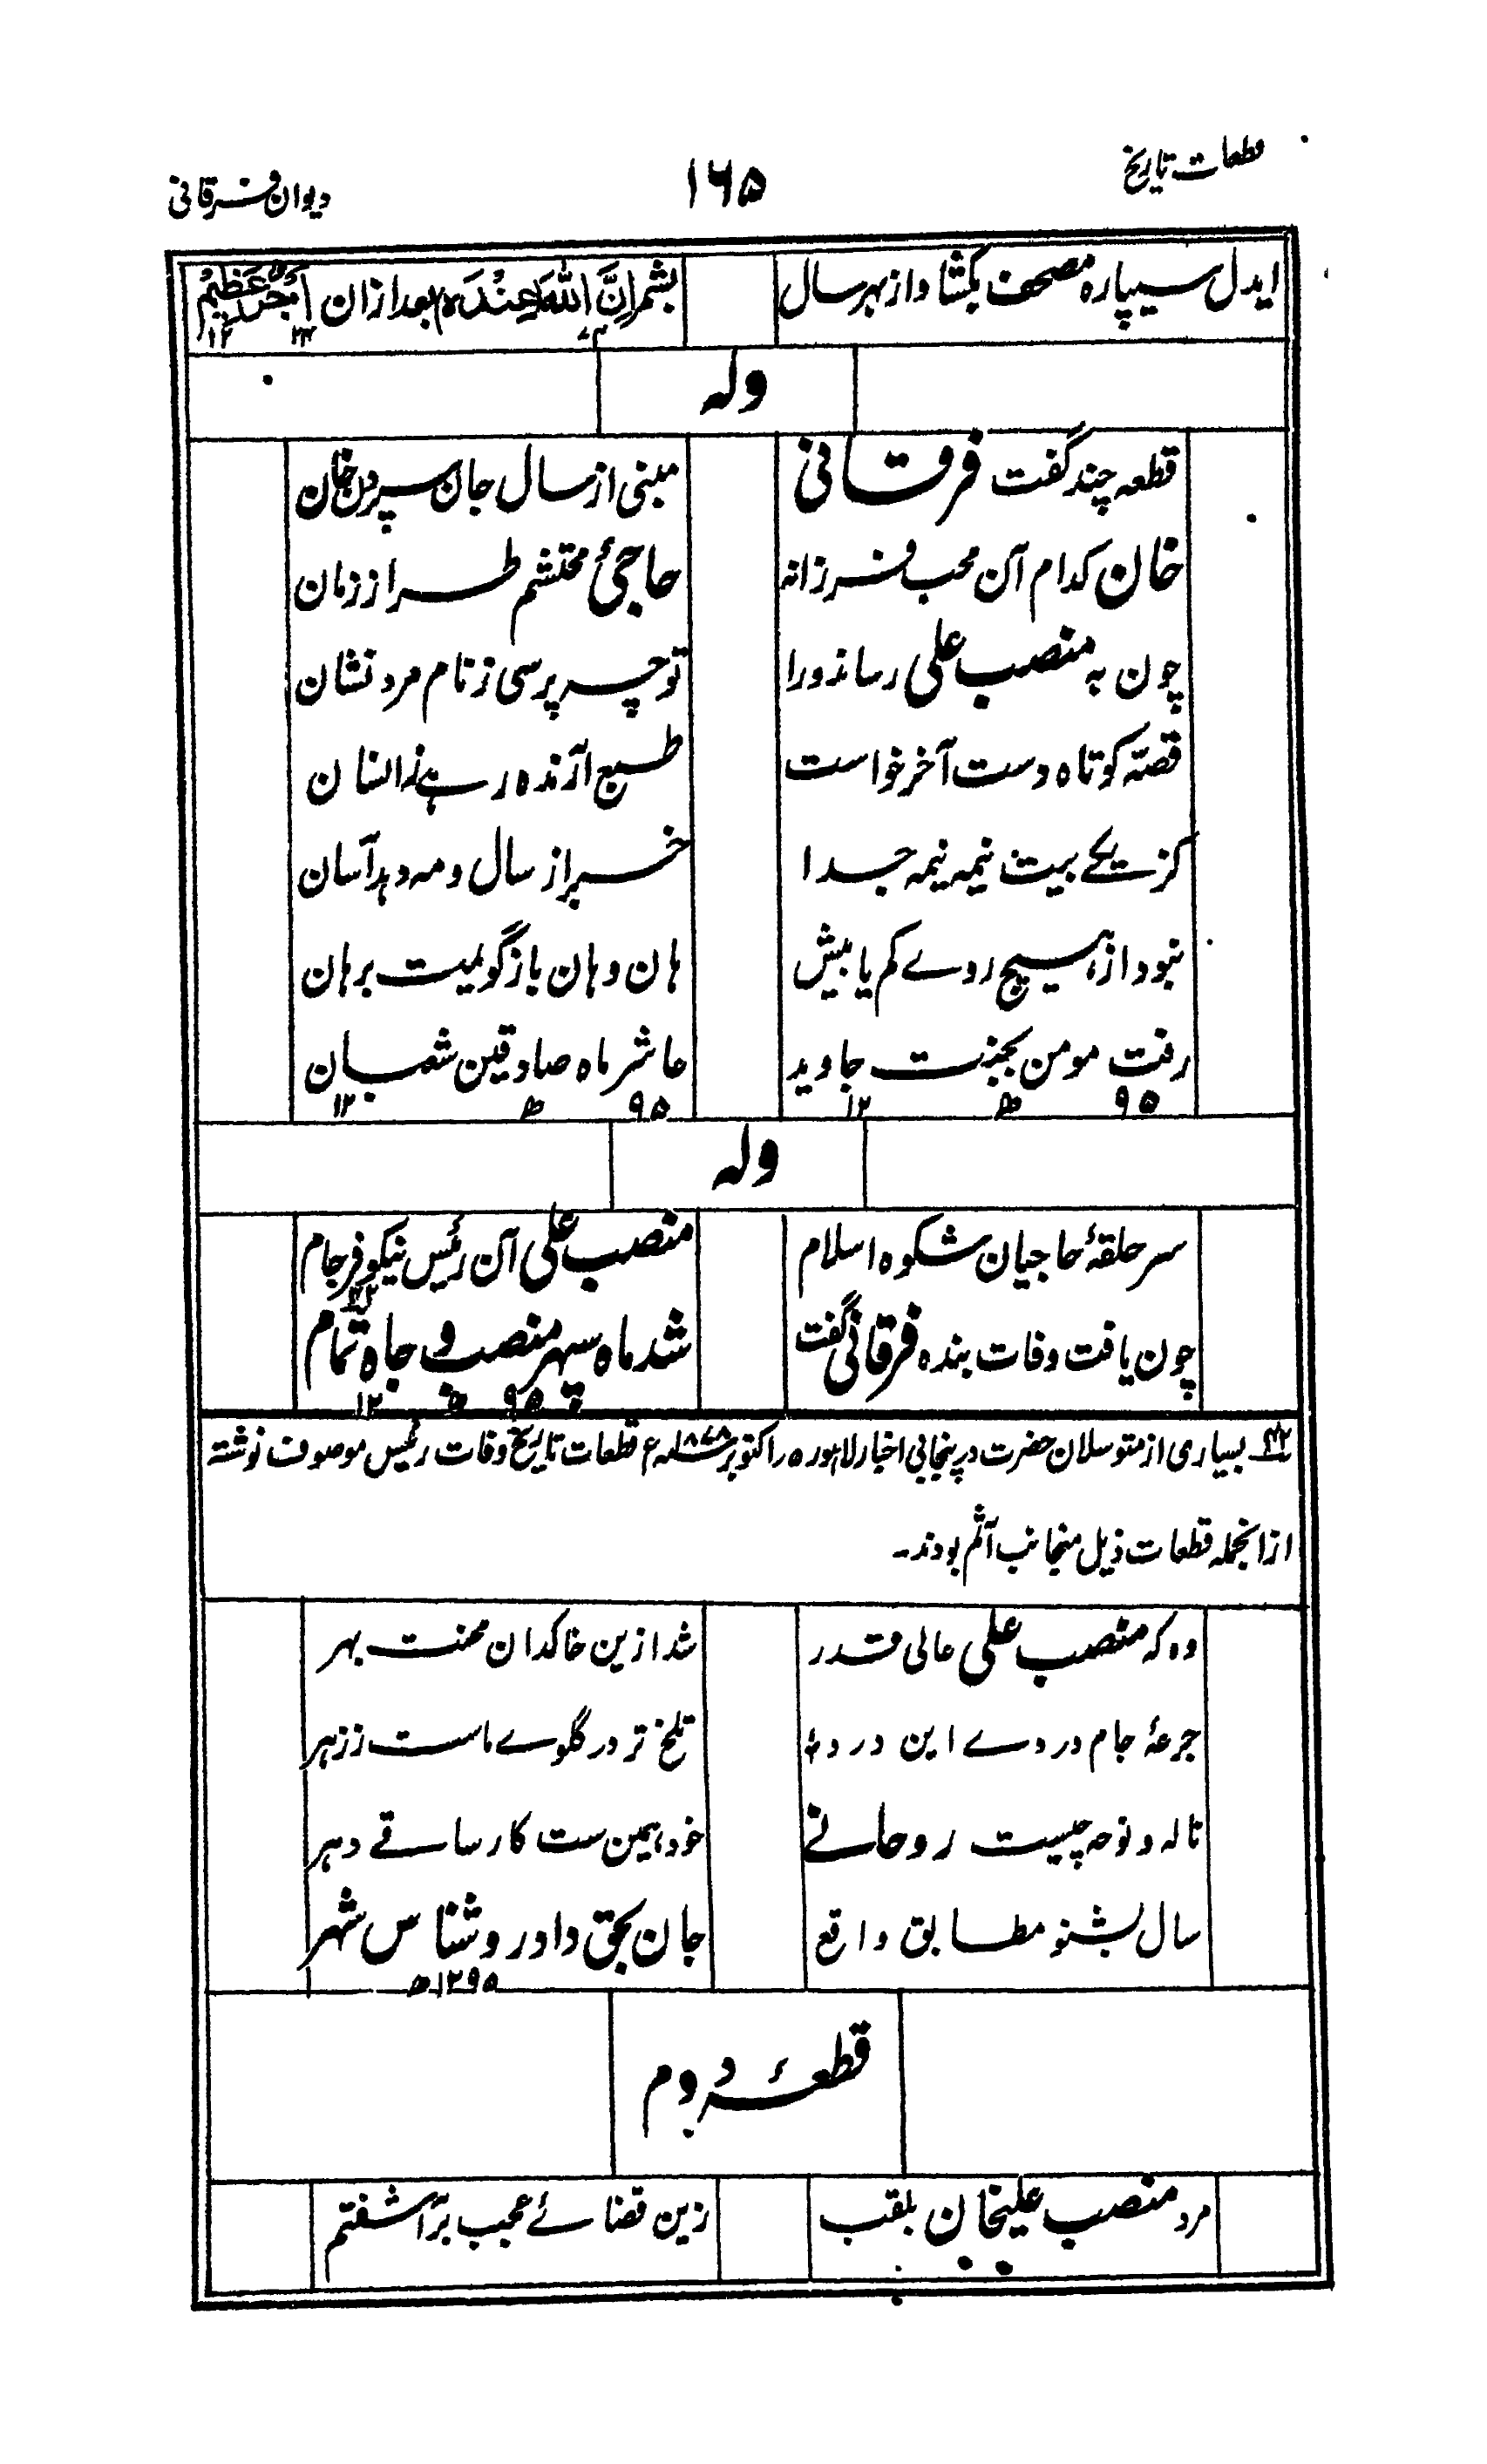 قطعات تاریخ ۱۶۵ دیوان فرقانی
ایدل سیپاره مصحف بکشا و از بهر سال بشمر اِنَّ اللّٰهَ عِنْدَهٗ بعد ازان اَجْرٌ عَظِیْمٌ
وله
قطعه چند گفت فرقانی مبنی از سال جان سپردن خان
خان کدام آن محب فرزانه حاجیٔ محتشم طراز زمان
چون به منصب علی رساند ورا تو چه پرسی ز نام مرد نشان
قصّه کوتاه دست آخر خواست طبع آزنده رہے ز انسان
کز یکے بیت نیمه نیمه جدا خبر از سال و مه دهد آسان
نبود از هیچ روے کم یا بیش هان و هان باز گویمت برهان
رفت مومن بجنت جاوید عاشر ماه صادقین شعبان
۹۵ ھ ۱۲ ۹۵ ھ ۱۲
وله
سر حلقهٔ حاجیان شکوه اسلام منصب علی آن رئیس نیکو فرجام
چون یافت وفات بنده فرقانی گفت شد ماه سپهر منصب و جاه تمام
۹۵ ھ ۱۲
بسیاری از متوسلان حضرت در پنجابی اخبار لاهور ۵ اکتوبر ۱۸۷۸ء قطعات تاریخ وفات رئیس موصوف نوشته
ازانجمله قطعات ذیل منجانب آثم بودند۔
وه که منصب علی عالی قدر شد ازین خاکدان محنت بهر
جرعهٔ جام دردے این درده تلخ تر در گلوے ماست ز زهر
ناله و نوحه چیست روحانے خود همین ست کار ساقے دهر
سال بشنو مطابق واقع جان بحق داد روشناس شهر
۱۲۹۵ھ
قطعهٔ دوم
مرد منصب علیخان بلقب زین قضائے عجب برآشفتم